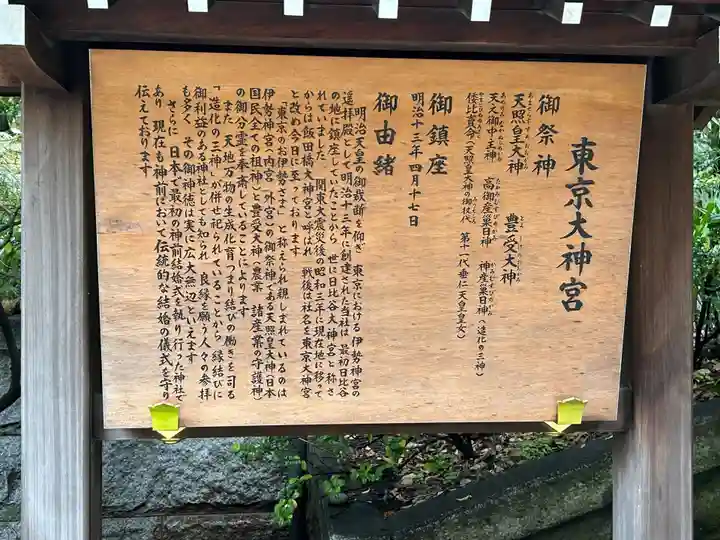 東京大神宮
御祭神
天照皇大神　豊受大神
天之御中主神　高御産巣日神　神産巣日神（造化の三神）
倭比賣命（天照皇大神の御杖代　第十一代垂仁天皇皇女）
御鎮座
明治十三年四月十七日
御由緒
明治天皇の御裁断を仰ぎ　東京における伊勢神宮の
遙拝殿として明治十三年に創建された当社は　最初日比谷
の地に鎮座していたことから　世に日比谷大神宮と称さ
れていました　関東大震災後の昭和三年に現在地に移って
からは飯田橋大神宮と呼ばれ　戦後は社名を東京大神宮
と改め今日に至っております
「東京のお伊勢さま」と称えられ親しまれているのは
伊勢神宮（内宮　外宮）の御祭神である天照皇大神（日本
国民全ての祖神）と豊受大神（農業　諸産業の守護神）
の御分霊を奉斎していることによります
また　天地万物の生成化育つまり結びの働きを司る
「造化の三神」が併せ祀られていることから　縁結びに
御利益のある神社としても知られ　良縁を願う人々の参拝
も多く　その御神徳は実に広大無辺といえます
さらに　日本で最初の神前結婚式を執り行った神社で
あり　現在も神前において伝統的な結婚の儀式を守り
伝えております